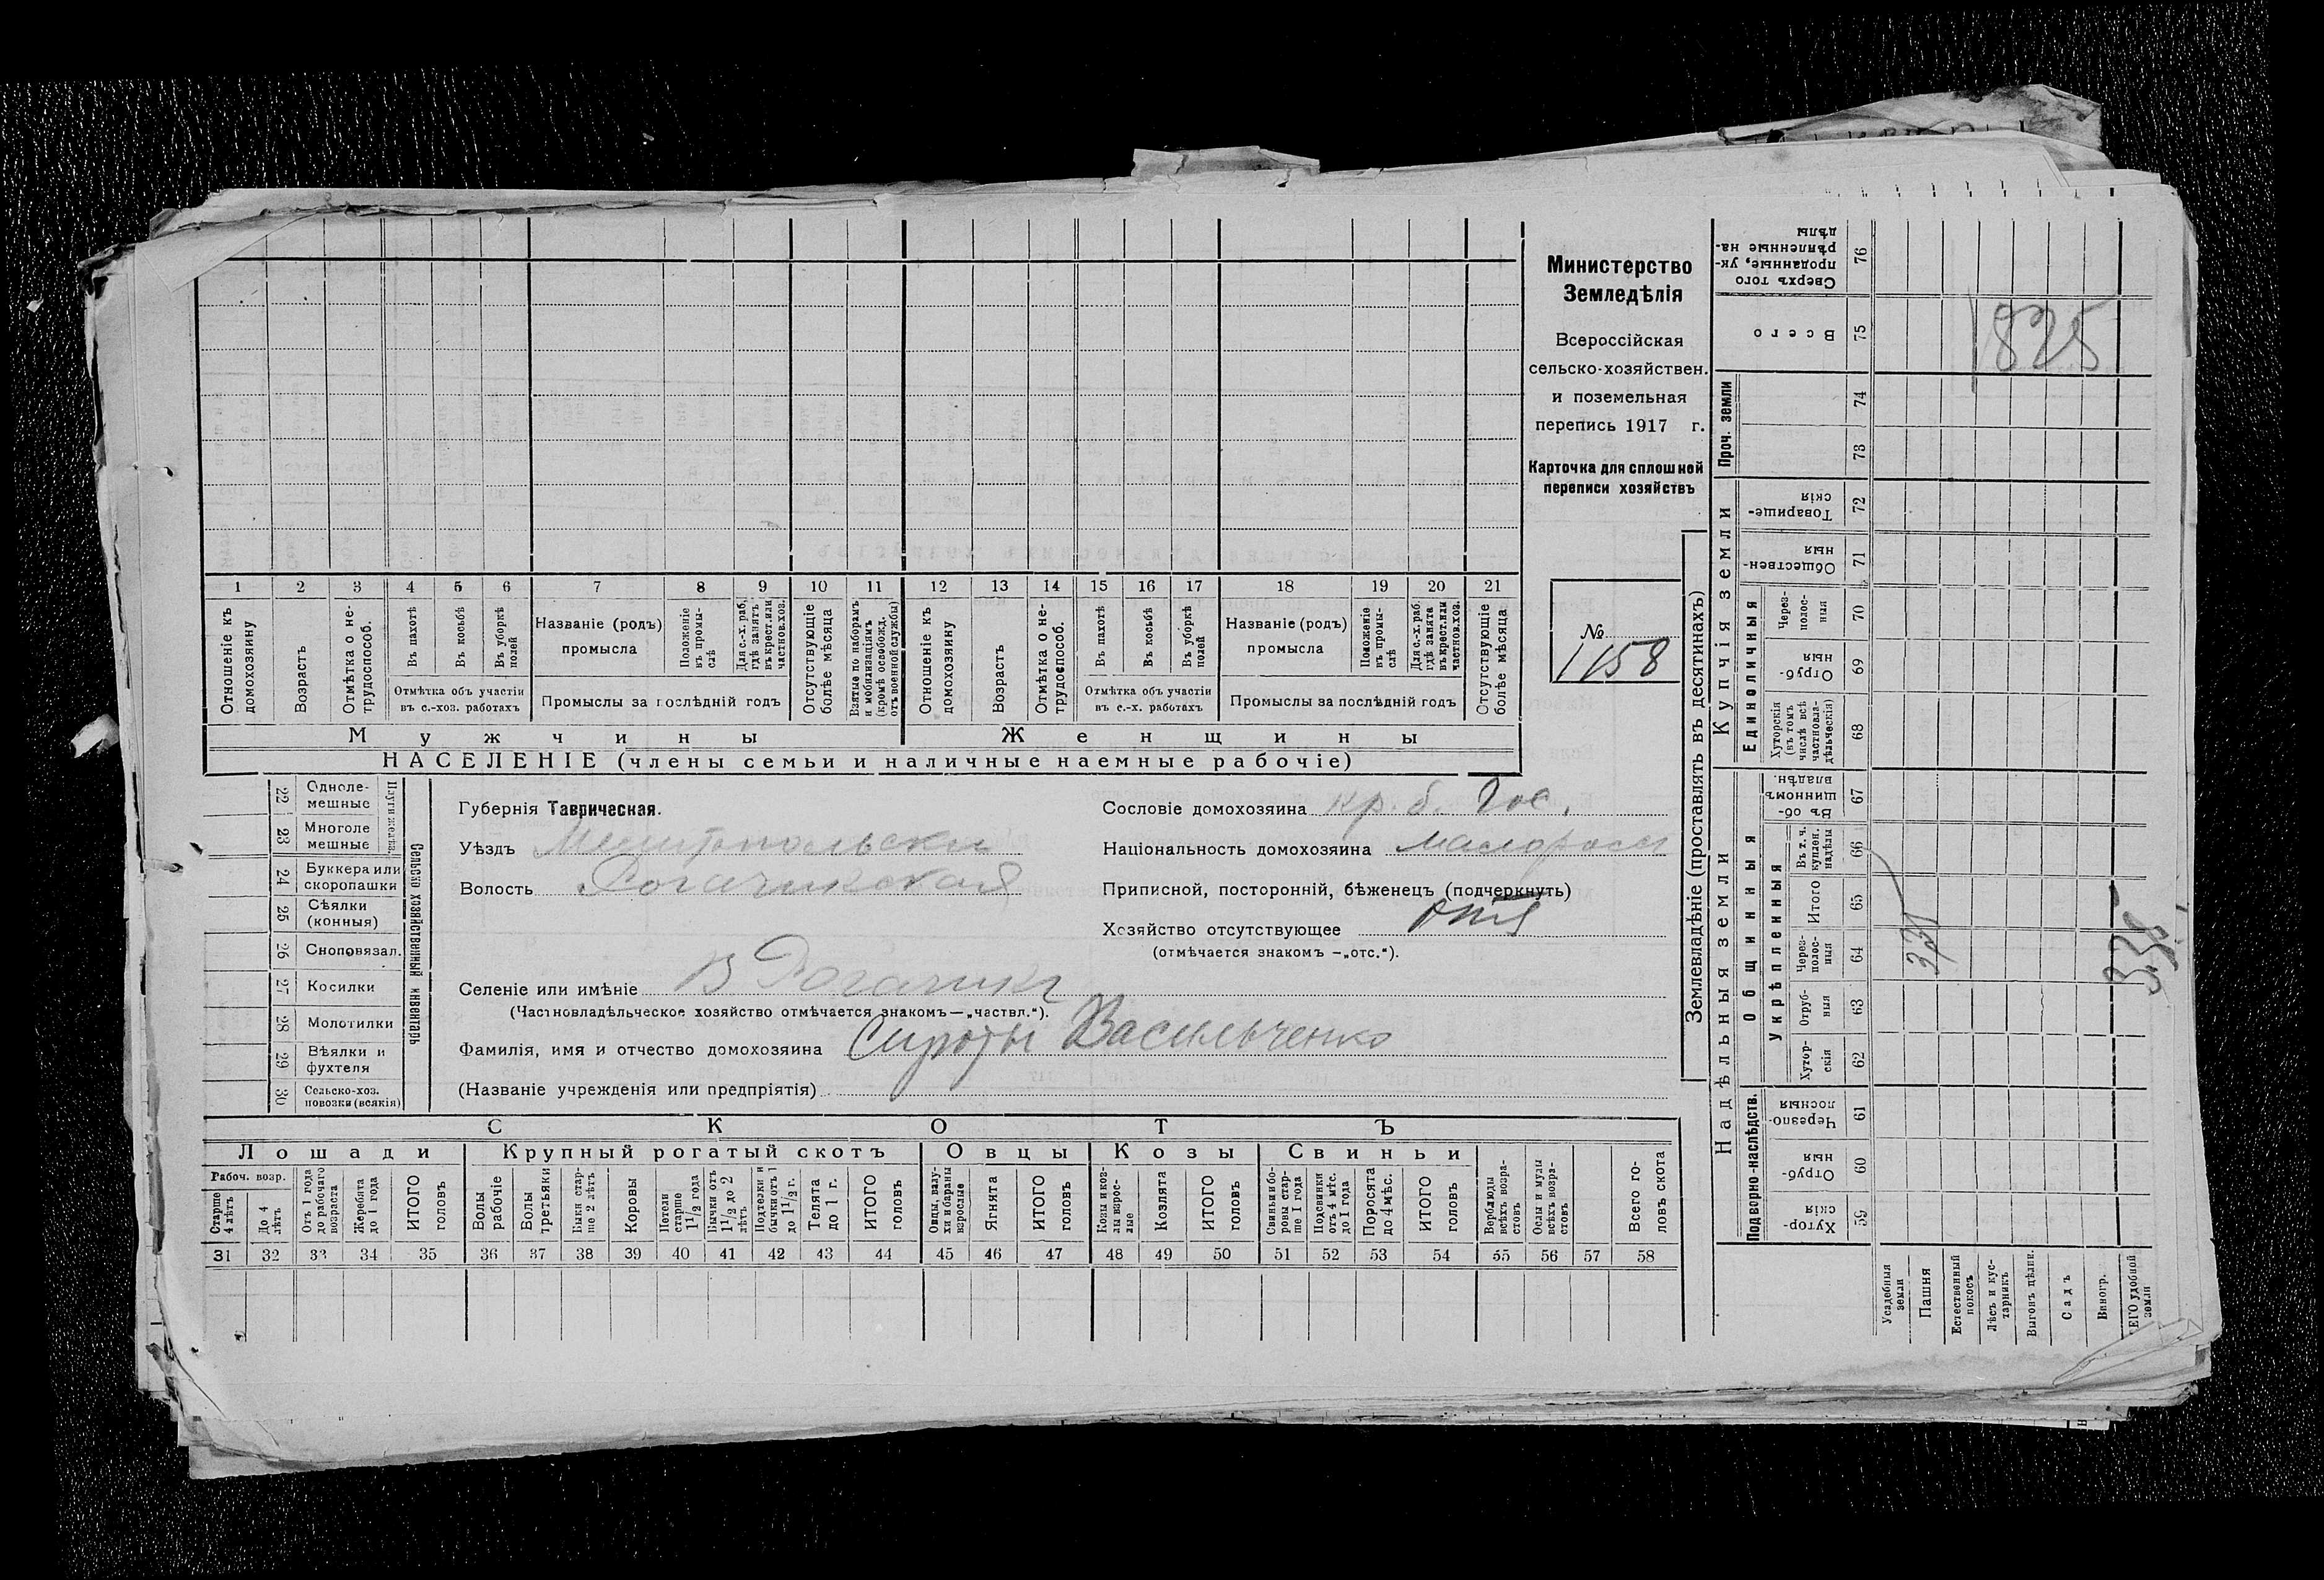 Министерство
Земледѣлія
Всероссійская
сельско-хозяйствен.
и поземельная
перепись 1917 г.
Карточка для сплошной
переписи хозяйствъ
№
1158
1 2 3 4 5 6 7 8 9 10 11 12 13 14 15 16 17 18 19 20 21
Отношеніе къ домохозяину
Возрастъ
Отмѣтка о не-трудоспособ.
Въ пахотѣ
Въ косьбѣ
Въ уборкѣ полей
Отмѣтка объ участіи
въ с.-хоз. работахъ
Названіе (родъ)
промысла
Положеніе въ промы-слѣ
Для с.-х. раб. гдѣ занятъ въ крест. или частновл. хоз.
Промыслы за послѣдній годъ
Отсутствующіе болѣе мѣсяца
Взятые по наборамъ и мобилизаціямъ (кромѣ освобожд. отъ военной службы)
Отношеніе къ домохозяину
Возрастъ
Отмѣтка о не-трудоспособ.
Въ пахотѣ
Въ косьбѣ
Въ уборкѣ полей
Отмѣтка объ участіи
въ с.-х. работахъ
Названіе (родъ)
промысла
Положеніе въ промы-слѣ
Для с.-х. раб. гдѣ занята въ крест. или частнов. хоз.
Промыслы за послѣдній годъ
Отсутствующіе болѣе мѣсяца
Мужчины Женщины
НАСЕЛЕНІЕ (члены семьи и наличные наемные рабочіе)
22 Одноле-мешные
23 Многоле мешные
Плуги желѣзн.
24 Буккера или скоропашки
25 Сѣялки (конныя)
26 Сноповязал.
27 Косилки
28 Молотилки
29 Вѣялки и фухтеля
30 Сельско-хоз. повозки (всякія)
Сельско хозяйственный инвентарь
Губернія Таврическая.
Уѣздъ Мелитопольски
Волость Рогачикская
Селеніе или имѣніе В Рогачикъ
(Частновладѣльческое хозяйство отмѣчается знакомъ—„частвл.“).
Фамилія, имя и отчество домохозяина Сироты Васильченко
(Названіе учрежденія или предпріятія)
Сословіе домохозяина кр. б. Гос.
Національность домохозяина малоросс
Приписной, посторонній, бѣженецъ (подчеркнуть)
Хозяйство отсутствующее
(отмѣчается знакомъ —„отс.“).
СКОТЪ
Лошади Крупный рогатый скотъ Овцы Козы Свиньи
Рабоч. возр.
Старше 4 лѣтъ
До 4 лѣтъ
Отъ 1 года до рабочаго возраста
Жеребята до 1 года
ИТОГО головъ
Волы рабочіе
Волы третьяки
Быки стар-ше 2 лѣтъ
Коровы
Нетели старше 1½ года
Бычки отъ 1½ до 2 лѣтъ
Подтелки и бычки отъ 1 до 1½ г.
Телята до 1 г.
ИТОГО головъ
Овцы, валу-хи и бараны взрослые
Ягнята
ИТОГО головъ
Козы и коз-лы взрос-лые
Козлята
ИТОГО головъ
Свиньи и бо-ровы стар-ше 1 года
Подсвинки отъ 4 мѣс. до 1 года
Поросята до 4 мѣс.
ИТОГО головъ
Верблюды всѣхъ возра-стовъ
Ослы и мулы всѣхъ возра-стовъ
Всего го-ловъ скота
31 32 33 34 35 36 37 38 39 40 41 42 43 44 45 46 47 48 49 50 51 52 53 54 55 56 57 58
Землевладѣніе (проставлять въ десятинахъ)
Надѣльныя земли
Купчія земли
Проч. земли
Подворно-наслѣдств.
Общинныя
Укрѣпленныя
Единоличныя
Хутор-скія 59
Отруб-ныя 60
Черезпо-лосныя 61
Хутор-скія 62
Отруб-ныя 63
Через-полос-ныя 64
Итого 65
Въ т. ч. куплен. надѣлы 66
Въ об-щинномъ владѣн. 67
Хуторскія (въ томъ числѣ всѣ частновла-дѣльческія) 68
Отруб-ныя 69
Через-полос-ныя 70
Обществен-ныя 71
Товарище-скія 72
73
74
Всего 75
Сверхъ того проданные, ук-рѣпленные на-дѣлы 76
Усадебныя земли
Пашня
Естественный покосъ
Лѣсъ и кус-тарникъ
Выгонъ цѣлин.
Садъ
Виногр.
ЕГО удобной земли
1825